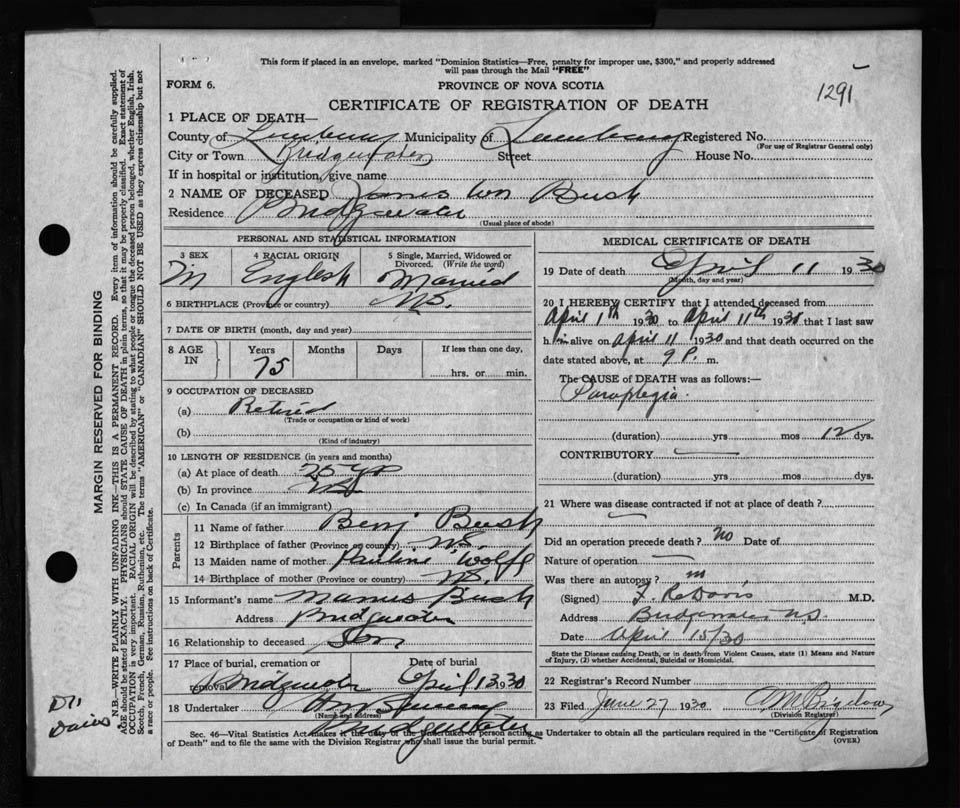 This form if placed in an envelope, marked "Dominion Statistics—Free, penalty for improper use, $300," and properly addressed
will pass through the Mail "FREE"
FORM 6.
PROVINCE OF NOVA SCOTIA
1291
CERTIFICATE OF REGISTRATION OF DEATH
1 PLACE OF DEATH—
County of Lunenburg Municipality of Lunenburg Registered No.
(For use of Registrar General only)
City or Town Bridgewater Street House No.
If in hospital or institution, give name
2 NAME OF DECEASED James Wm Bush
Residence Bridgewater
(Usual place of abode)
PERSONAL AND STATISTICAL INFORMATION
3 SEX 4 RACIAL ORIGIN 5 Single, Married, Widowed or
Divorced. (Write the word)
M English Married
6 BIRTHPLACE (Province or country) N.S.
7 DATE OF BIRTH (month, day and year)
8 AGE IN Years Months Days If less than one day,
75 hrs. or min.
9 OCCUPATION OF DECEASED
(a) Retired
(Trade or occupation or kind of work)
(b)
(Kind of industry)
10 LENGTH OF RESIDENCE (in years and months)
(a) At place of death 25 yrs
(b) In province NS
(c) In Canada (if an immigrant)
Parents
11 Name of father Benj Bush
12 Birthplace of father (Province or country) N.S.
13 Maiden name of mother Pauline Wolfe
14 Birthplace of mother (Province or country) N.S.
15 Informant's name Bush
Address Bridgewater
16 Relationship to deceased Son
17 Place of burial, cremation or Date of burial
removal Bridgewater April 13 1930
18 Undertaker
(Name and address)
Bridgewater
MEDICAL CERTIFICATE OF DEATH
19 Date of death April 11 1930
(Month, day and year)
20 I HEREBY CERTIFY that I attended deceased from
April 1th 1930 to April 11th 1930 that I last saw
h im alive on April 11 1930 and that death occurred on the
date stated above, at 9 P. m.
The CAUSE OF DEATH was as follows:—
Paraplegia.
(duration) yrs mos 12 dys.
CONTRIBUTORY
(duration) yrs mos dys.
21 Where was disease contracted if not at place of death?
Did an operation precede death? no Date of
Nature of operation
Was there an autopsy? no
(Signed) Davis M.D.
Address Bridgewater N.S.
Date April 15/30
State the Disease causing Death, or in death from Violent Causes, state (1) Means and Nature
of Injury, (2) whether Accidental, Suicidal or Homicidal.
22 Registrar's Record Number
23 Filed June 27 1930 Bigelow
(Division Registrar)
Sec. 46—Vital Statistics Act makes it the duty of the Undertaker or person acting as Undertaker to obtain all the particulars required in the "Certificate of Registration
of Death" and to file the same with the Division Registrar who shall issue the burial permit.
(OVER)
MARGIN RESERVED FOR BINDING
N.B.—WRITE PLAINLY WITH UNFADING INK—THIS IS A PERMANENT RECORD. Every item of information should be carefully supplied.
AGE should be stated EXACTLY. PHYSICIANS should STATE CAUSE OF DEATH in plain terms, so that it may be properly classified. Exact statement of
OCCUPATION is very important. RACIAL ORIGIN will be described by stating to what people or tongue the deceased person belonged, whether English, Irish,
Scotch, French, German, Russian, Ruthenian, etc. The terms "AMERICAN" or "CANADIAN" SHOULD NOT BE USED as they express citizenship but not
a race or people. See instructions on back of Certificate.
Dr.
Davis